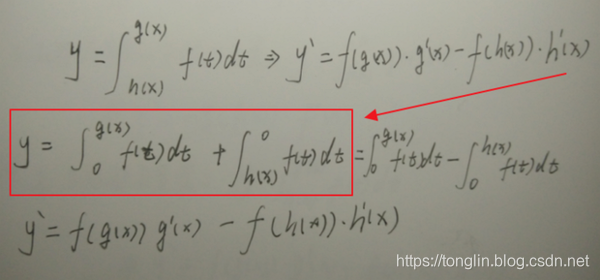 y = ∫_{h(x)}^{g(x)} f(t)dt ⇒ y` = f(g(x))·g'(x) - f(h(x))·h'(x)
y = ∫_0^{g(x)} f(t)dt + ∫_{h(x)}^0 f(t)dt = ∫_0^{g(x)} f(t)dt - ∫_0^{h(x)} f(t)dt
y` = f(g(x)) g'(x) - f(h(x))·h'(x)
https://tonglin.blog.csdn.net